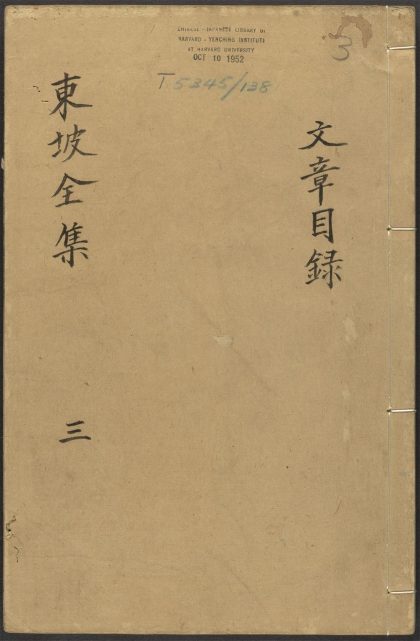 CHINESE - JAPANESE LIBRARY OF
HARVARD - YENCHING INSTITUTE
AT HARVARD UNIVERSITY
OCT 10 1952
3
T 5345/138
文章目録
東坡全集
三